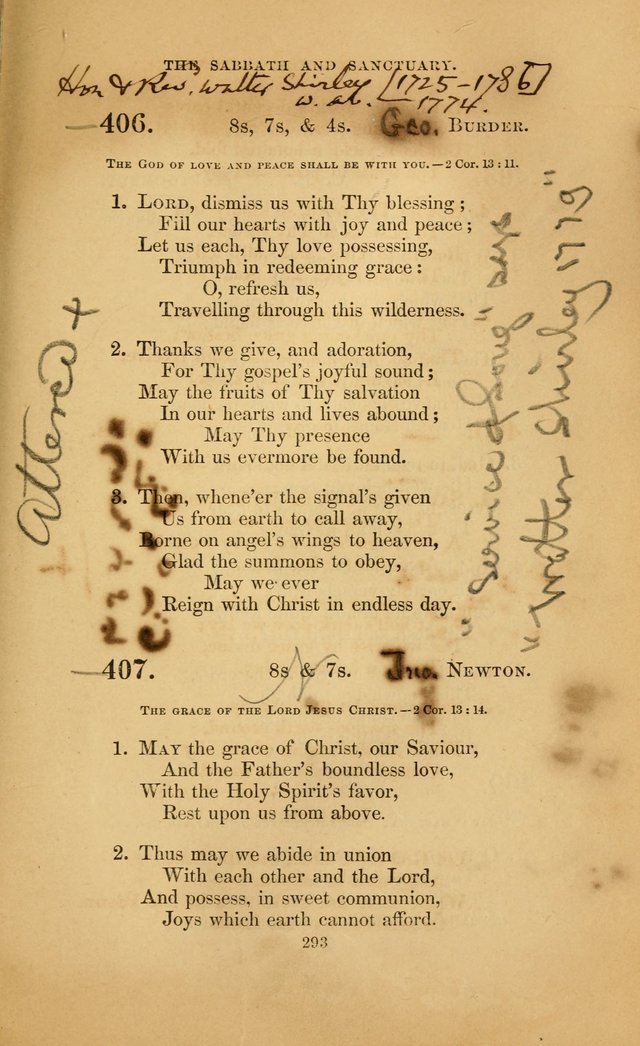 THE SABBATH AND SANCTUARY.
Hon & Rev. Walter Shirley [1725-1786]
w. ab. — 1774.
406. 8s, 7s, & 4s. Geo. BURDER.
THE GOD OF LOVE AND PEACE SHALL BE WITH YOU.—2 COR. 13 : 11.
1. LORD, dismiss us with Thy blessing ;
Fill our hearts with joy and peace ;
Let us each, Thy love possessing,
Triumph in redeeming grace :
O, refresh us,
Travelling through this wilderness.
2. Thanks we give, and adoration,
For Thy gospel's joyful sound ;
May the fruits of Thy salvation
In our hearts and lives abound ;
May Thy presence
With us evermore be found.
3. Then, whene'er the signal's given
Us from earth to call away,
Borne on angel's wings to heaven,
Glad the summons to obey,
May we ever
Reign with Christ in endless day.
Altered +
"Service of Song" says
"Walter Shirley 1779"
407. 8s & 7s. Jno. NEWTON.
THE GRACE OF THE LORD JESUS CHRIST.—2 COR. 13 : 14.
1. MAY the grace of Christ, our Saviour,
And the Father's boundless love,
With the Holy Spirit's favor,
Rest upon us from above.
2. Thus may we abide in union
With each other and the Lord,
And possess, in sweet communion,
Joys which earth cannot afford.
293